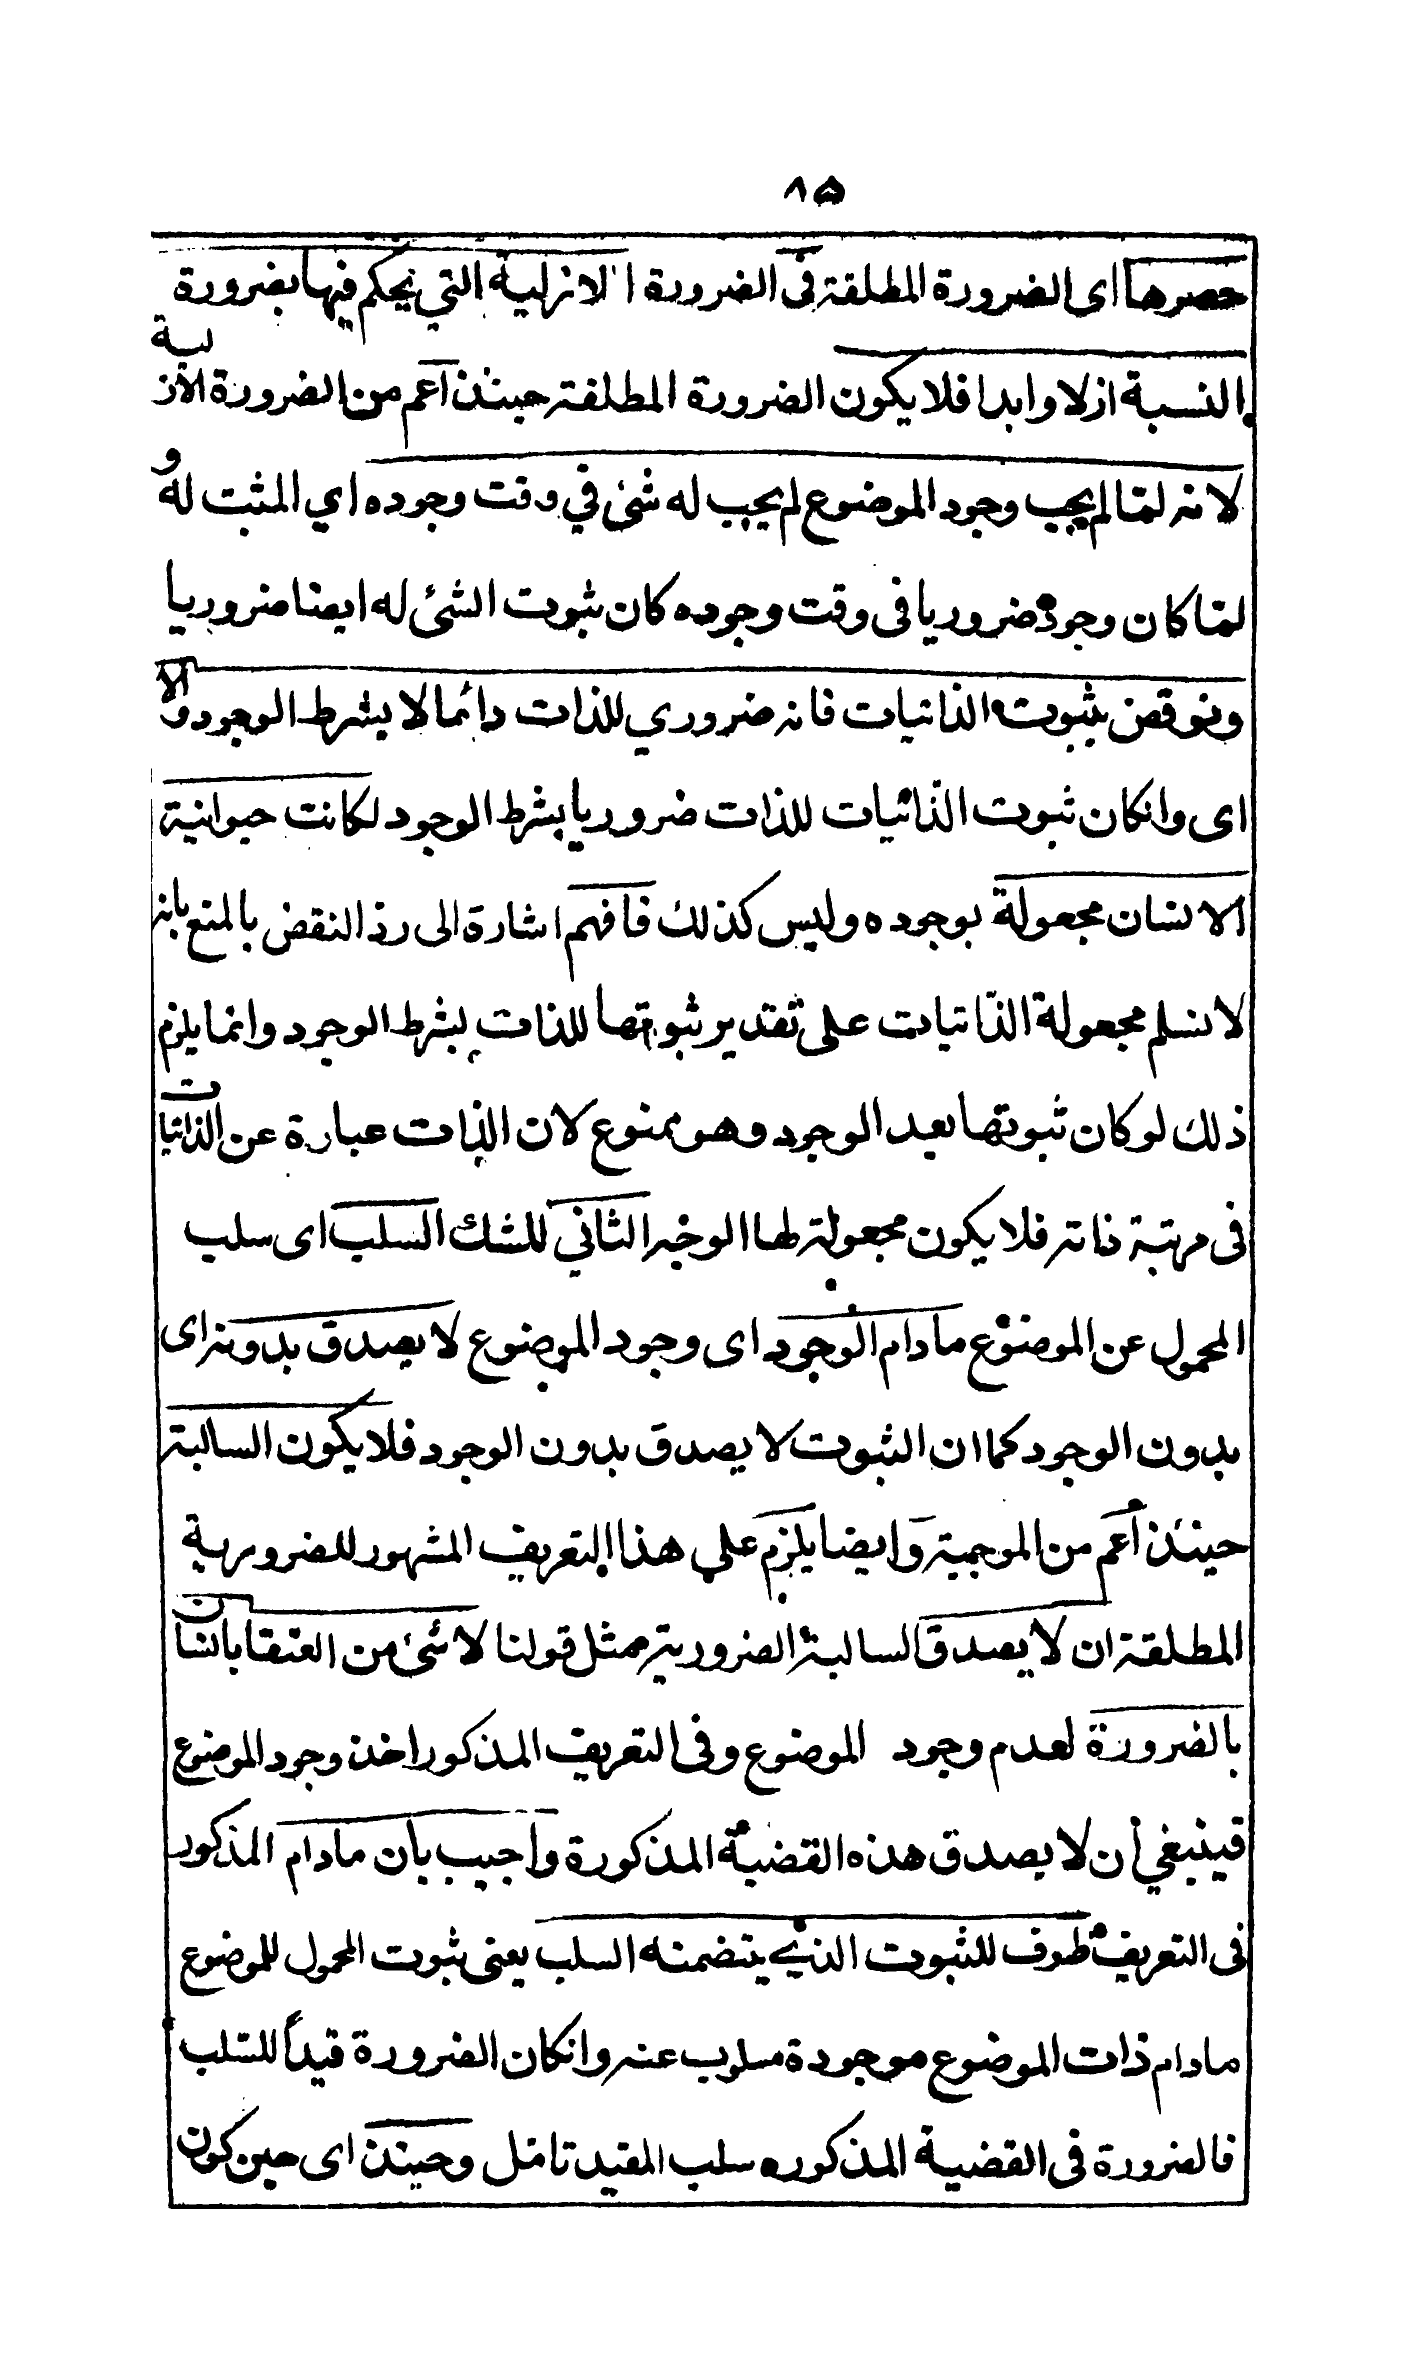 ٨۵
حصرها اى الضرورة المطلقة فى الضرورة الازلية التي يحكم فيها بضرورة
النسبة ازلا وابدا فلا يكون الضرورة المطلقة حينئذ اعم من الضرورة الازلية
لانه لمّا لم يجب وجود الموضوع لم يجب له شئ في وقت وجوده اي المثبت له و
لمّا كان وجوده ضروريا فى وقت وجوده كان ثبوت الشئ له ايضا ضروريا
ونوقض بثبوت الذاتيات فانه ضروري للذات دائما لا بشرط الوجود والا
اى وانكان ثبوت الذّاتيات للذات ضروريا بشرط الوجود لكانت حيوانية
الانسان مجعولة بوجوده وليس كذلك فافهم اشارة الى ردّ النقض بالمنع بانه
لا نسلم مجعولة الذّاتيات على تقدير ثبوتها للذات بشرط الوجود وانما يلزم
ذلك لو كان ثبوتها بعد الوجود وهو ممنوع لان الذات عبارة عن الذاتيات
فى مرتبة ذاته فلا يكون مجعولة لها الوجه الثاني للشك السلب اى سلب
المحمول عن الموضوع مادام الوجود اى وجود الموضوع لا يصدق بدونه اى
بدون الوجود كما ان الثبوت لا يصدق بدون الوجود فلا يكون السالبة
حينئذ أعم من الموجبة وايضا يلزم علي هذا التعريف المشهور للضرورية
المطلقة ان لا يصدق السالبة الضرورية مثل قولنا لا شئ من العنقا بانسان
بالضرورة لعدم وجود الموضوع وفى التعريف المذكور اخذ وجود الموضوع
فينبغي أن لا يصدق هذه القضية المذكورة واجيب بأن مادام المذكور
فى التعريف ظرف للثبوت الذي يتضمنه السلب يعنى ثبوت المحمول للموضوع
مادام ذات الموضوع موجودة مسلوب عنه وانكان الضرورة قيداً للسّلب
فالضرورة فى القضية المذكوره سلب المقيد تامّل وحينئذ اى حين كون